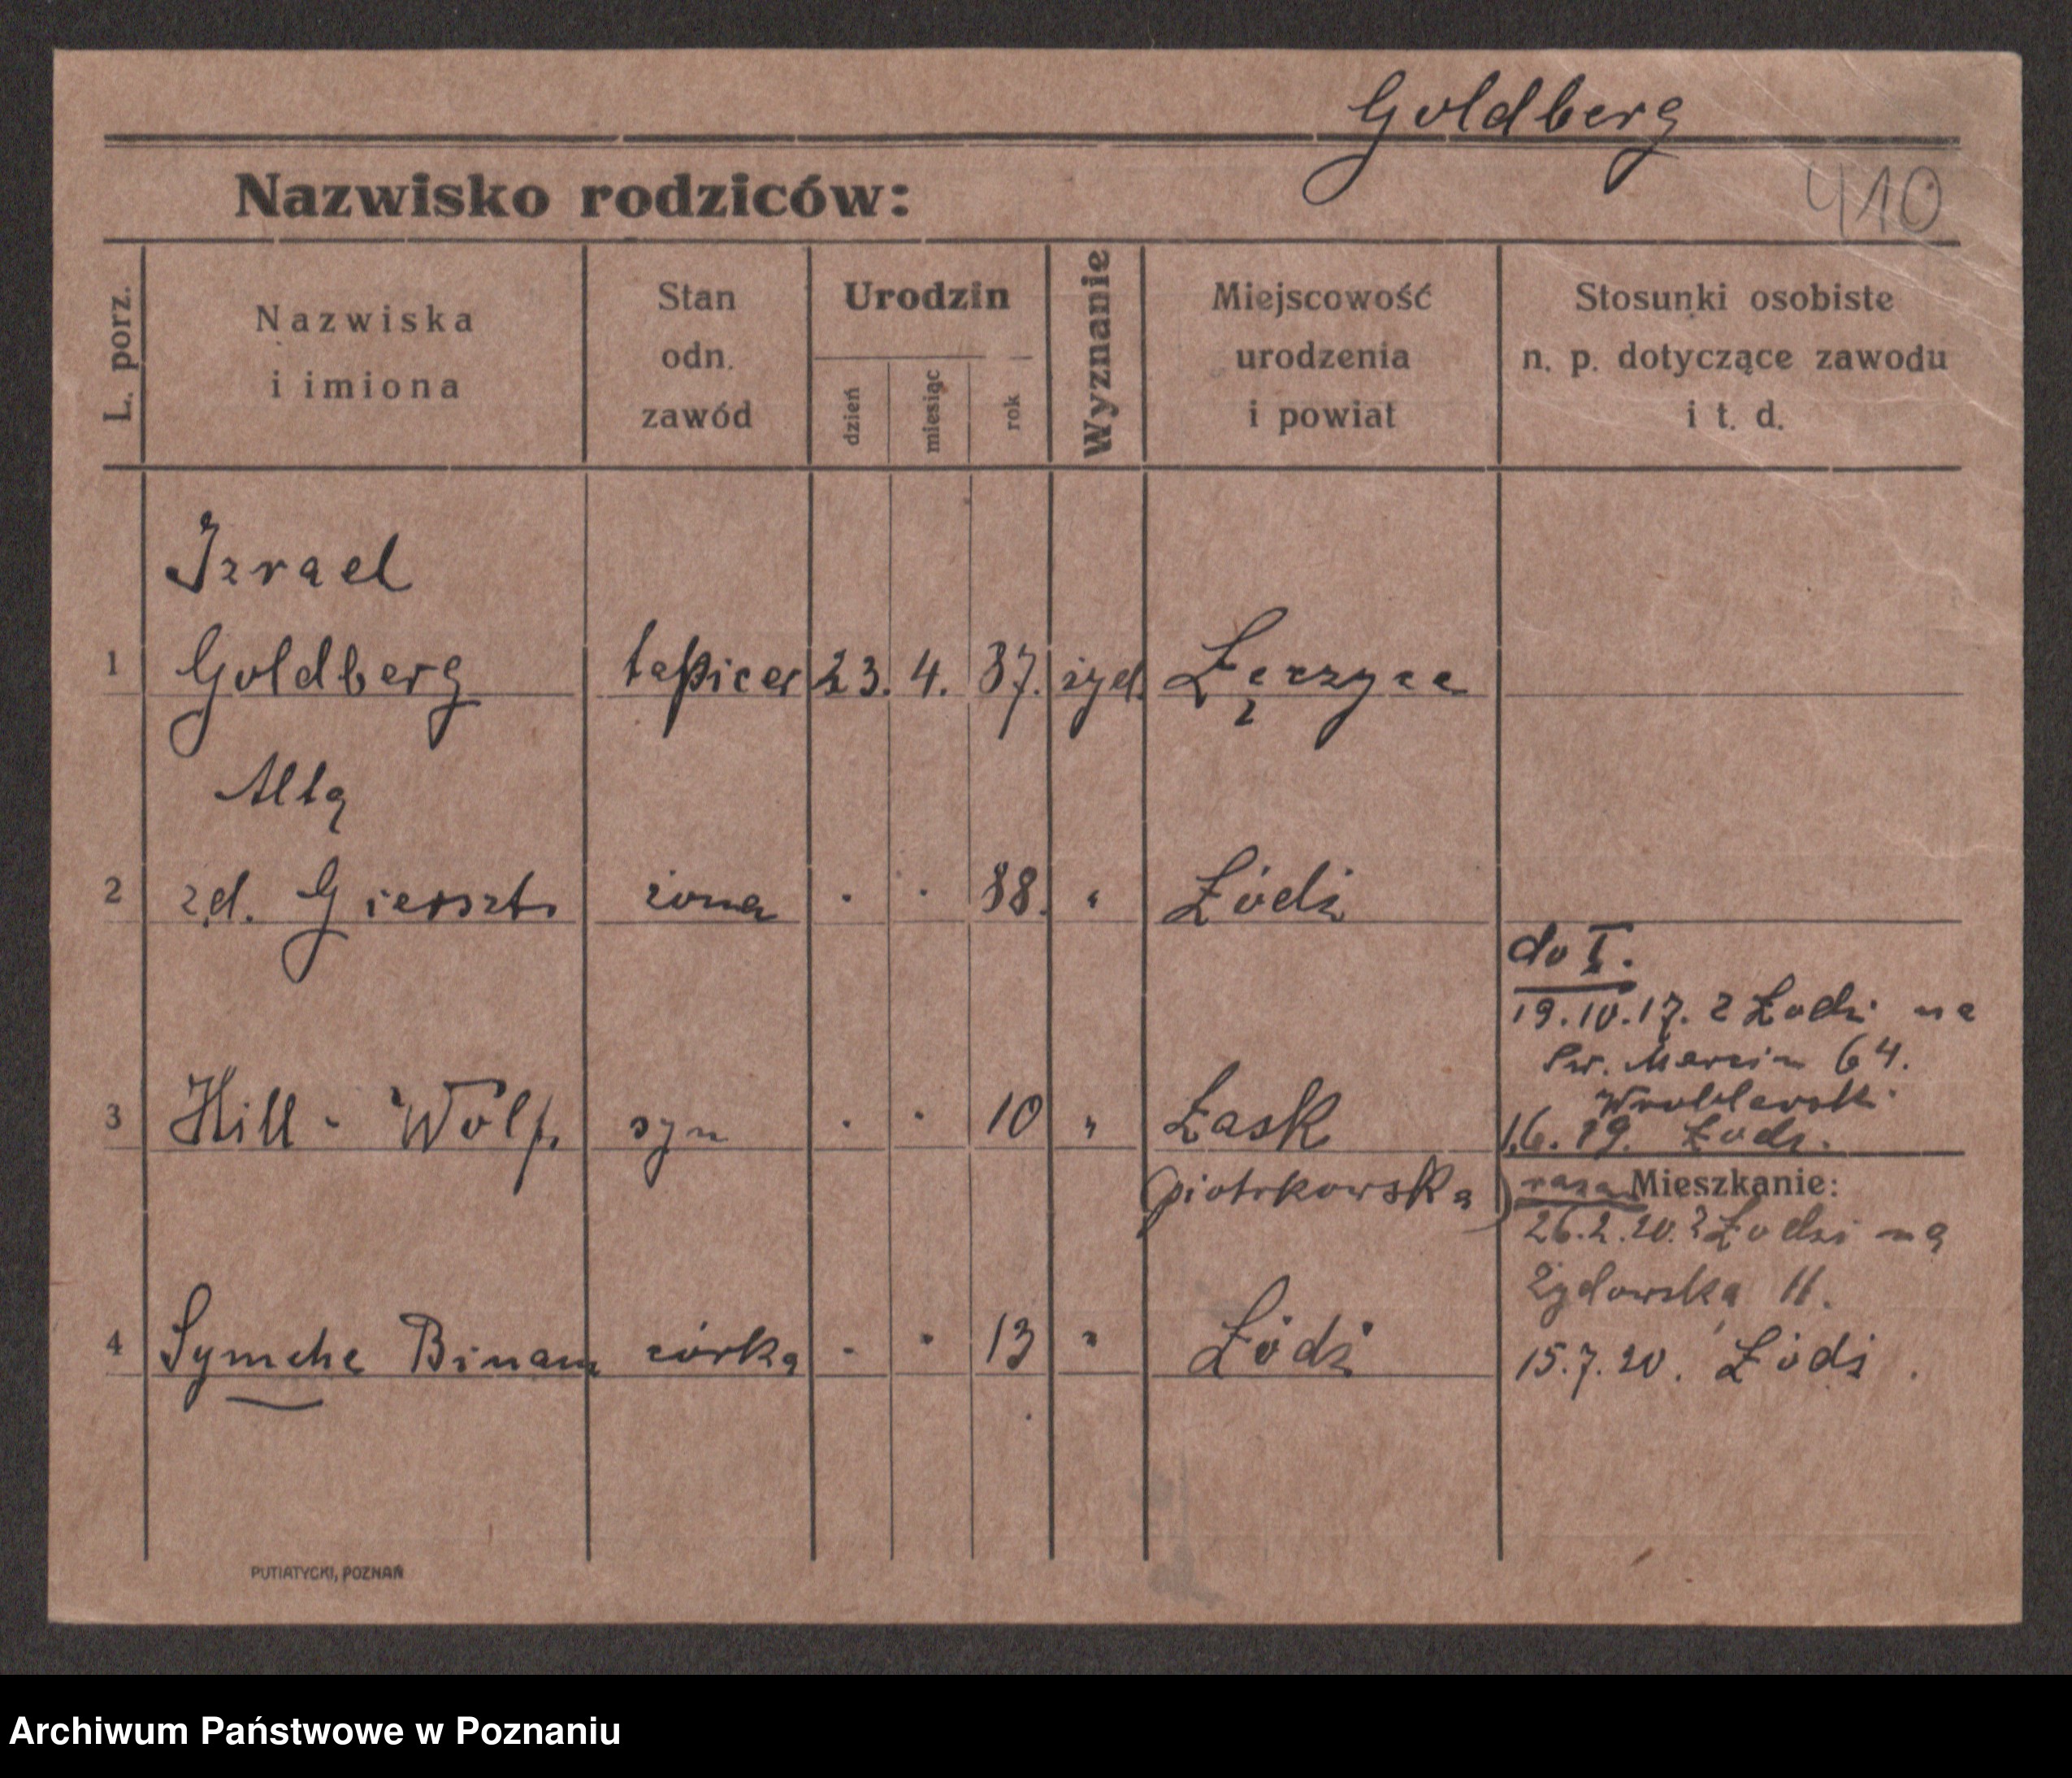 Goldberg
Nazwisko rodziców:
410
L. porz.
Nazwiska
i imiona
Stan
odn.
zawód
Urodzin
dzień
miesiąc
rok
Wyznanie
Miejscowość
urodzenia
i powiat
Stosunki osobiste
n. p. dotyczące zawodu
i t. d.
Izrael
1 Goldberg tapicer 23. 4. 87. żyd. Łęczyca
Alta
2 zd. żona . . 88. " Łódź
do I.
19.10.17. z Łodzi na
Św. Marcin 64.
3 Hill - Wolf. syn . . 10 " Łask
1.6.19. Łódź.
piotrkowska)
Mieszkanie:
26.2.20. z Łodzi na
Żydowska 11.
4 Symche Binam córka . . 13 " Łódź
15.7.20. Łódź.
PUTIATYCKI, POZNAŃ
Archiwum Państwowe w Poznaniu